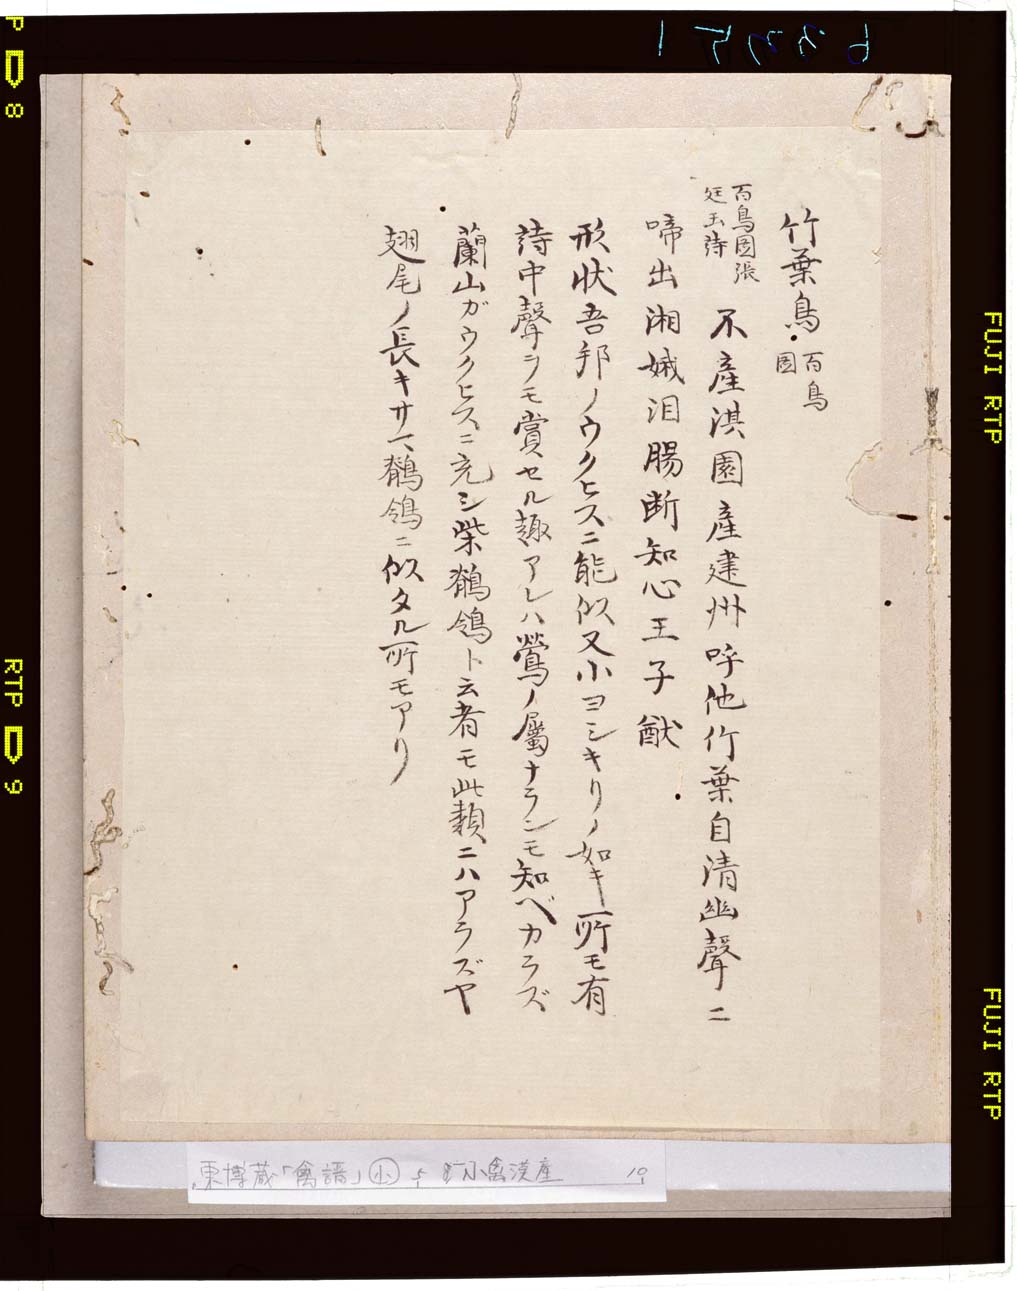 竹葉鳥 百鳥
図
百鳥図張
廷玉詩
不産淇園産建州呼他竹葉自清幽聲々
啼出湘娥泪腸断知心王子猷
形状吾邦ノウクヒスニ能似又小ヨシキリノ如キ所モ有
詩中聲ヲモ賞セル趣アレハ鶯ノ屬ナランモ知ベカラズ
蘭山ガウクヒスニ充シ柴鶺鴒ト云者モ此類ニハアラズヤ
翅尾ノ長キサマ鶺鴒ニ似タル所モアリ
東博蔵「禽譜」小 小禽漢産 10
FUJI RTP
FUJI RTP
RTP 9
P 8